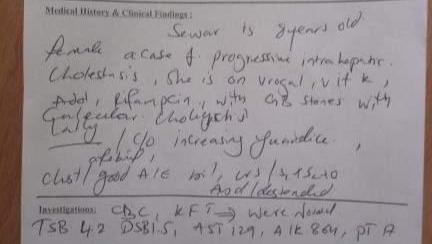 Medical History & Clinical Findings:
Sewar is 8 years old
female a case of progressive intrahepatic
Cholestasis, She is on urogal, vit K,
Rifampicin, with GB stones with
/ C/O increasing Jaundice,
afebrile,
chest / good A/E
Abd / distended
Investigations: CBC, KFT → were normal
TSB 4.2 DSB 1.5, AST 129, Alk 864, PT 17